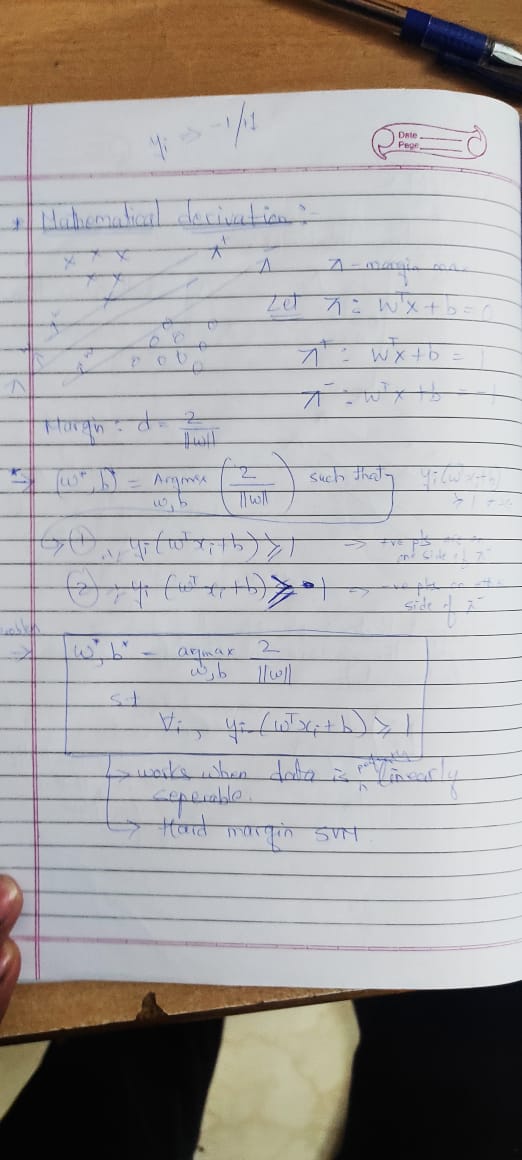 yi ⇒ -1/+1
Date
Page
* Mathematical derivation :-
π+
π π - margin max
Let π : wᵀx + b = 0
π+ : wᵀx + b = 1
π- : wᵀx + b = -1
Margin : d = 2/||w||
(w*, b*) = Argmax w,b (2/||w||) such that, yi(wᵀxi+b) ≥ 1
→ ① yi (wᵀxi + b) ≥ 1 → +ve pts are on one side of
② yi (wᵀxi + b) ≥ 1 → -ve pts on other side of π-
w*, b* = argmax w,b 2/||w||
s.t
∀i, yi (wᵀxi + b) ≥ 1
→ works when data is linearly
seperable.
→ Hard margin SVM